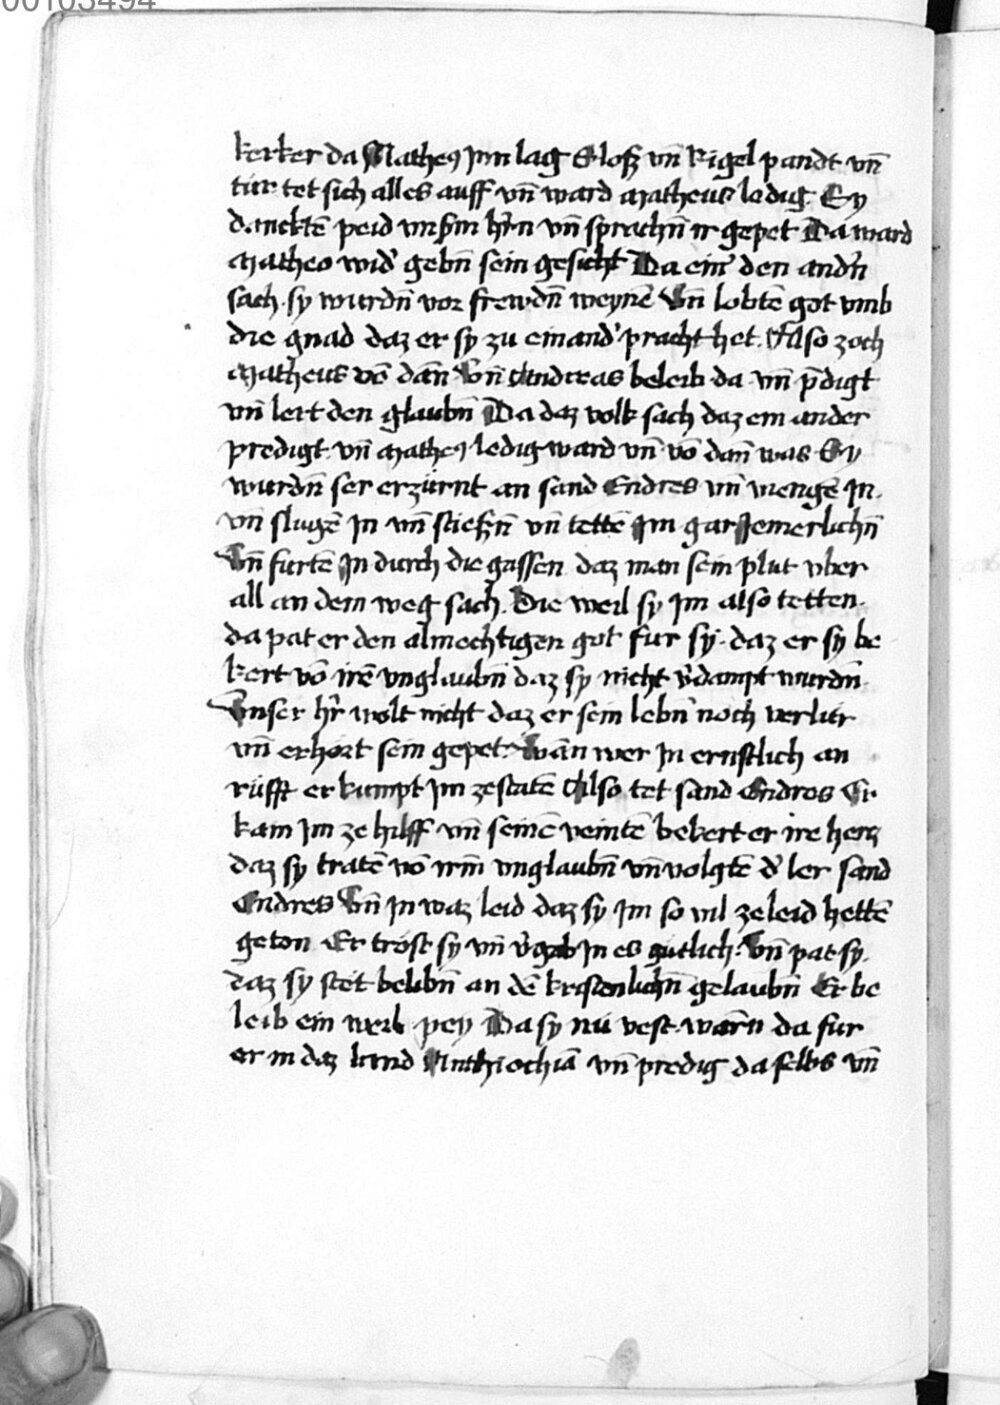 00103494
kerker da Matheus Jnn lag Sloß vn̄ Rigel pandt vn̄
tür tet sich alles auff vn̄ ward matheus ledig Sy
danckte͂ peid vnßm hr̄n vn̄ sprachn̄ ir gepet Da ward
matheo wid' gebn̄ sein gesicht Da ein' den and'n
sach sy wurdn̄ vor frewdn̄ weyne͂ Vn̄ lobte͂ got vmb
die gnad daz er sy zu einand' pracht het. Also zoch
Matheus vō dān Vn̄ Andreas beleib da vn̄ p̄digt
vn̄ lert den glaubn̄ Da daz volk sach daz ein ander
predigt vn̄ matheus ledig ward vn̄ vō dān was Sy
wurdn̄ ser erzürnt an sand Endres vn̄ viengē Jn.
vn̄ slugē Jn vn̄ stießn̄ vn̄ tettē Jm gar Jemerlichn̄
Vn̄ furtē Jn durch die gassen daz man sein plut vber
all an dem weg sach. Die weil sy Jm also tetten.
da pat er den almechtigen got fur sy. daz er sy be
kert vō irē vnglaubn̄ daz sy nicht v'dampt wurdn̄.
Vnser hr̄ wolt nicht daz er sein lebn̄ noch verlür
vn̄ erhört sein gepet. Wān wer Jn ernstlich an
rüfft er kumpt Jm ze statē Also tet sand Endres Er
kam Jm ze hilff vn̄ seinē veintē bekert er ire hercz
daz sy tratē vō irm̄ vnglaubn̄ vn̄ volgtē d' ler sand
Endres Vn̄ Jn waz leid daz sy Jm so vil ze leid hettē
geton Er tröst sy vn̄ v'gab Jn es gütlich. Vn̄ pat sy.
daz sy stet belibn̄ an dē kristenlichn̄ gelaubn̄ Er be
leib ein weil pey Da sy nü vest warn̄ da fur
er in daz land Anthiochiā vn̄ predig da selbs vn̄